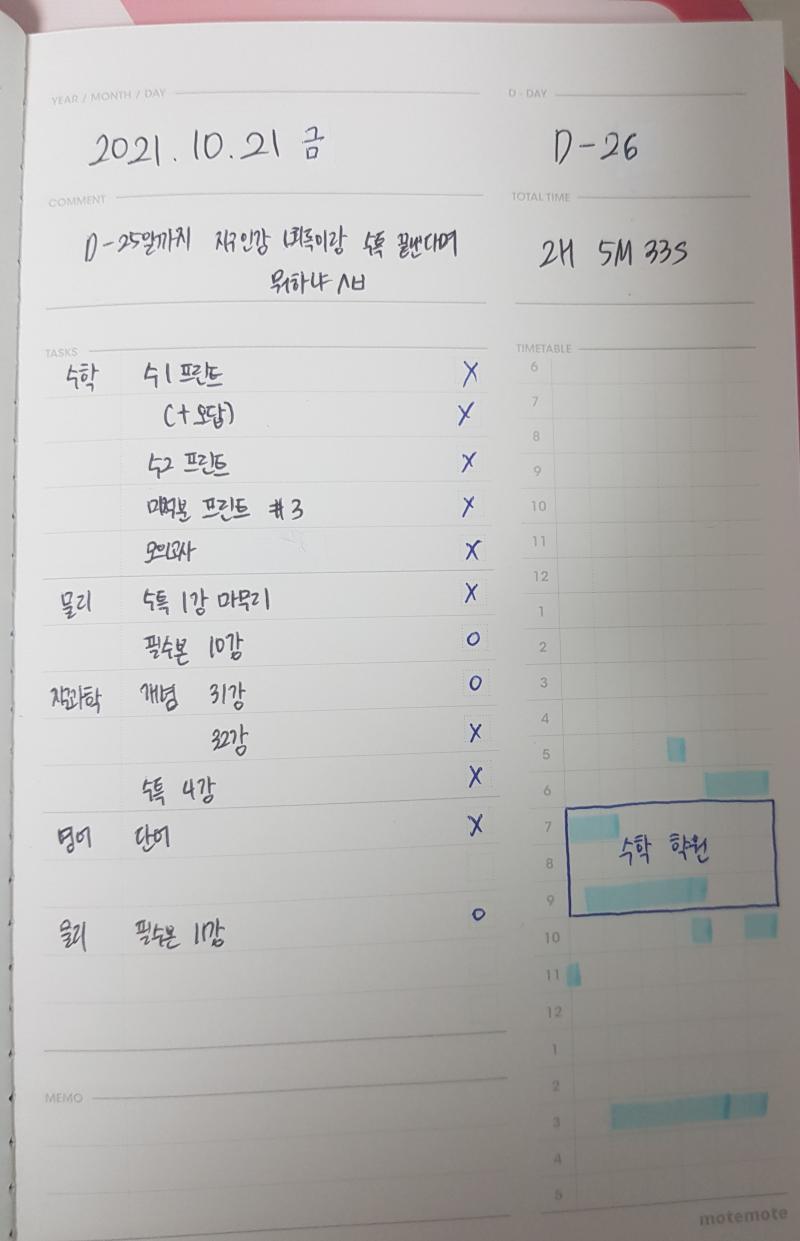 YEAR / MONTH / DAY
2021.10.21 금
D - DAY
D-26
COMMENT
D-25일까지 지구인강 1회독이랑 수특 끝낸다며
뭐하냐 ㅅㅂ
TOTAL TIME
2H 5M 33S
TASKS
수학 수1 프린트 X
(+오답) X
수2 프린트 X
미적분 프린트 #3 X
모의고사 X
물리 수특 1강 마무리 X
필수본 10강 O
개념 31강 O
32강 X
수특 4강 X
영어 단어 X
물리 필수본 11강 O
MEMO
TIMETABLE
6
7
8
9
10
11
12
1
2
3
4
5
6
7
수학 학원
8
9
10
11
12
1
2
3
4
5
motemote